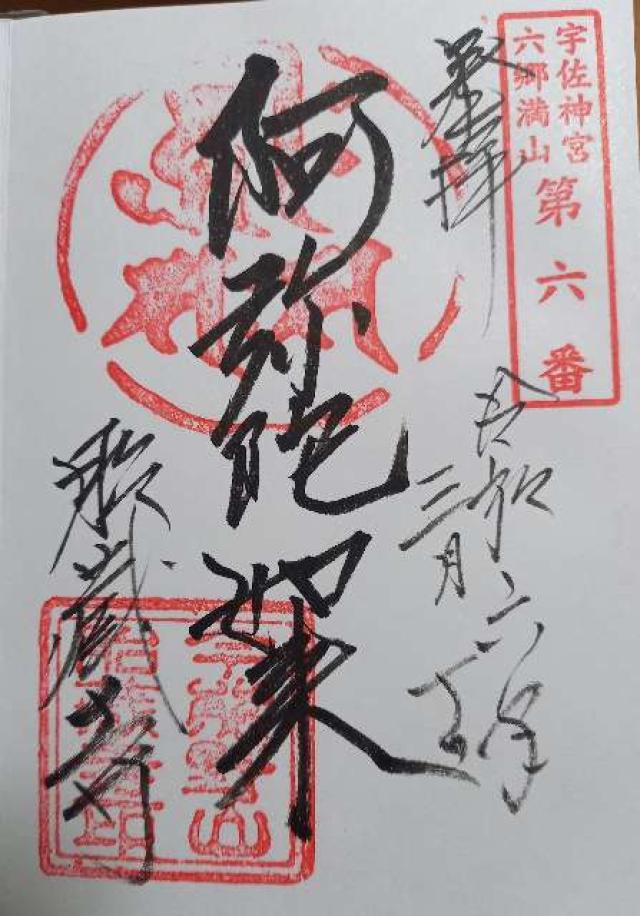 宇佐神宮
六郷満山
第六番
奉拝
令和六年
三月
阿弥陀如来
胎蔵寺